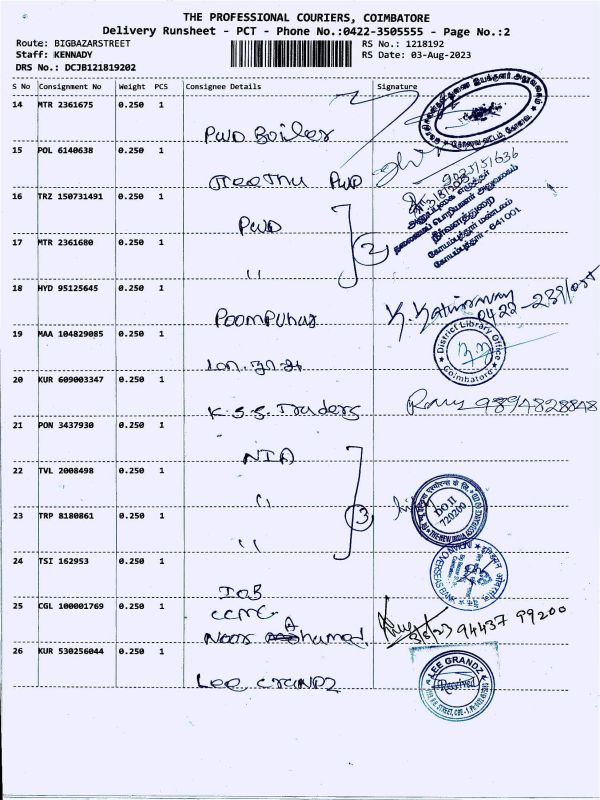 THE PROFESSIONAL COURIERS, COIMBATORE
Delivery Runsheet - PCT - Phone No.:0422-3505555 - Page No.:2
Route: BIGBAZARSTREET
RS No.: 1218192
Staff: KENNADY
RS Date: 03-Aug-2023
DRS No.: DCJB121819202
S No Consignment No Weight PCS Consignee Details Signature
14 MTR 2361675 0.250 1
PWD Boiler
15 POL 6140638 0.250 1
PWD
16 TRZ 150731491 0.250 1
PWD
தலைமைப் பொறியாளர் அலுவலகம்
நீர்வளத்துறை
கோயம்புத்தூர் மண்டலம்
கோயம்புத்தூர் - 641 001
17 MTR 2361680 0.250 1
"
2
18 HYD 95125645 0.250 1
Poompuhar
19 MAA 104829085 0.250 1
District Library Office
Coimbatore
மா.நூ.அ
20 KUR 609003347 0.250 1
K.S.S. Traders
9894828848
21 PON 3437930 0.250 1
NIA
22 TVL 2008498 0.250 1
"
DO II
720200
THE NEW INDIA ASSURANCE
23 TRP 8180861 0.250 1
"
3
24 TSI 162953 0.250 1
INDIAN OVERSEAS BANK
IOB
25 CGL 100001769 0.250 1
CCMC
94437 99200
26 KUR 530256044 0.250 1
LEE GRANDZ
Received
LEE GRANDZ